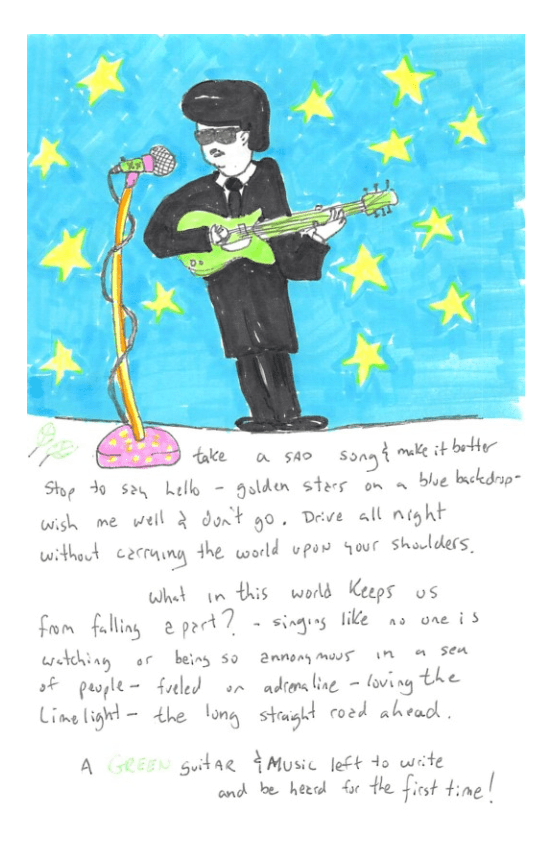 take a SAD song & make it better
Stop to say hello - golden stars on a blue backdrop -
wish me well & don't go. Drive all night
without carrying the world upon your shoulders.
What in this world keeps us
from falling apart? - singing like no one is
watching or being so annonymous in a sea
of people - fueled on adrenaline - loving the
Limelight - the long straight road ahead.
A GREEN guitAR & Music left to write
and be heard for the first time!